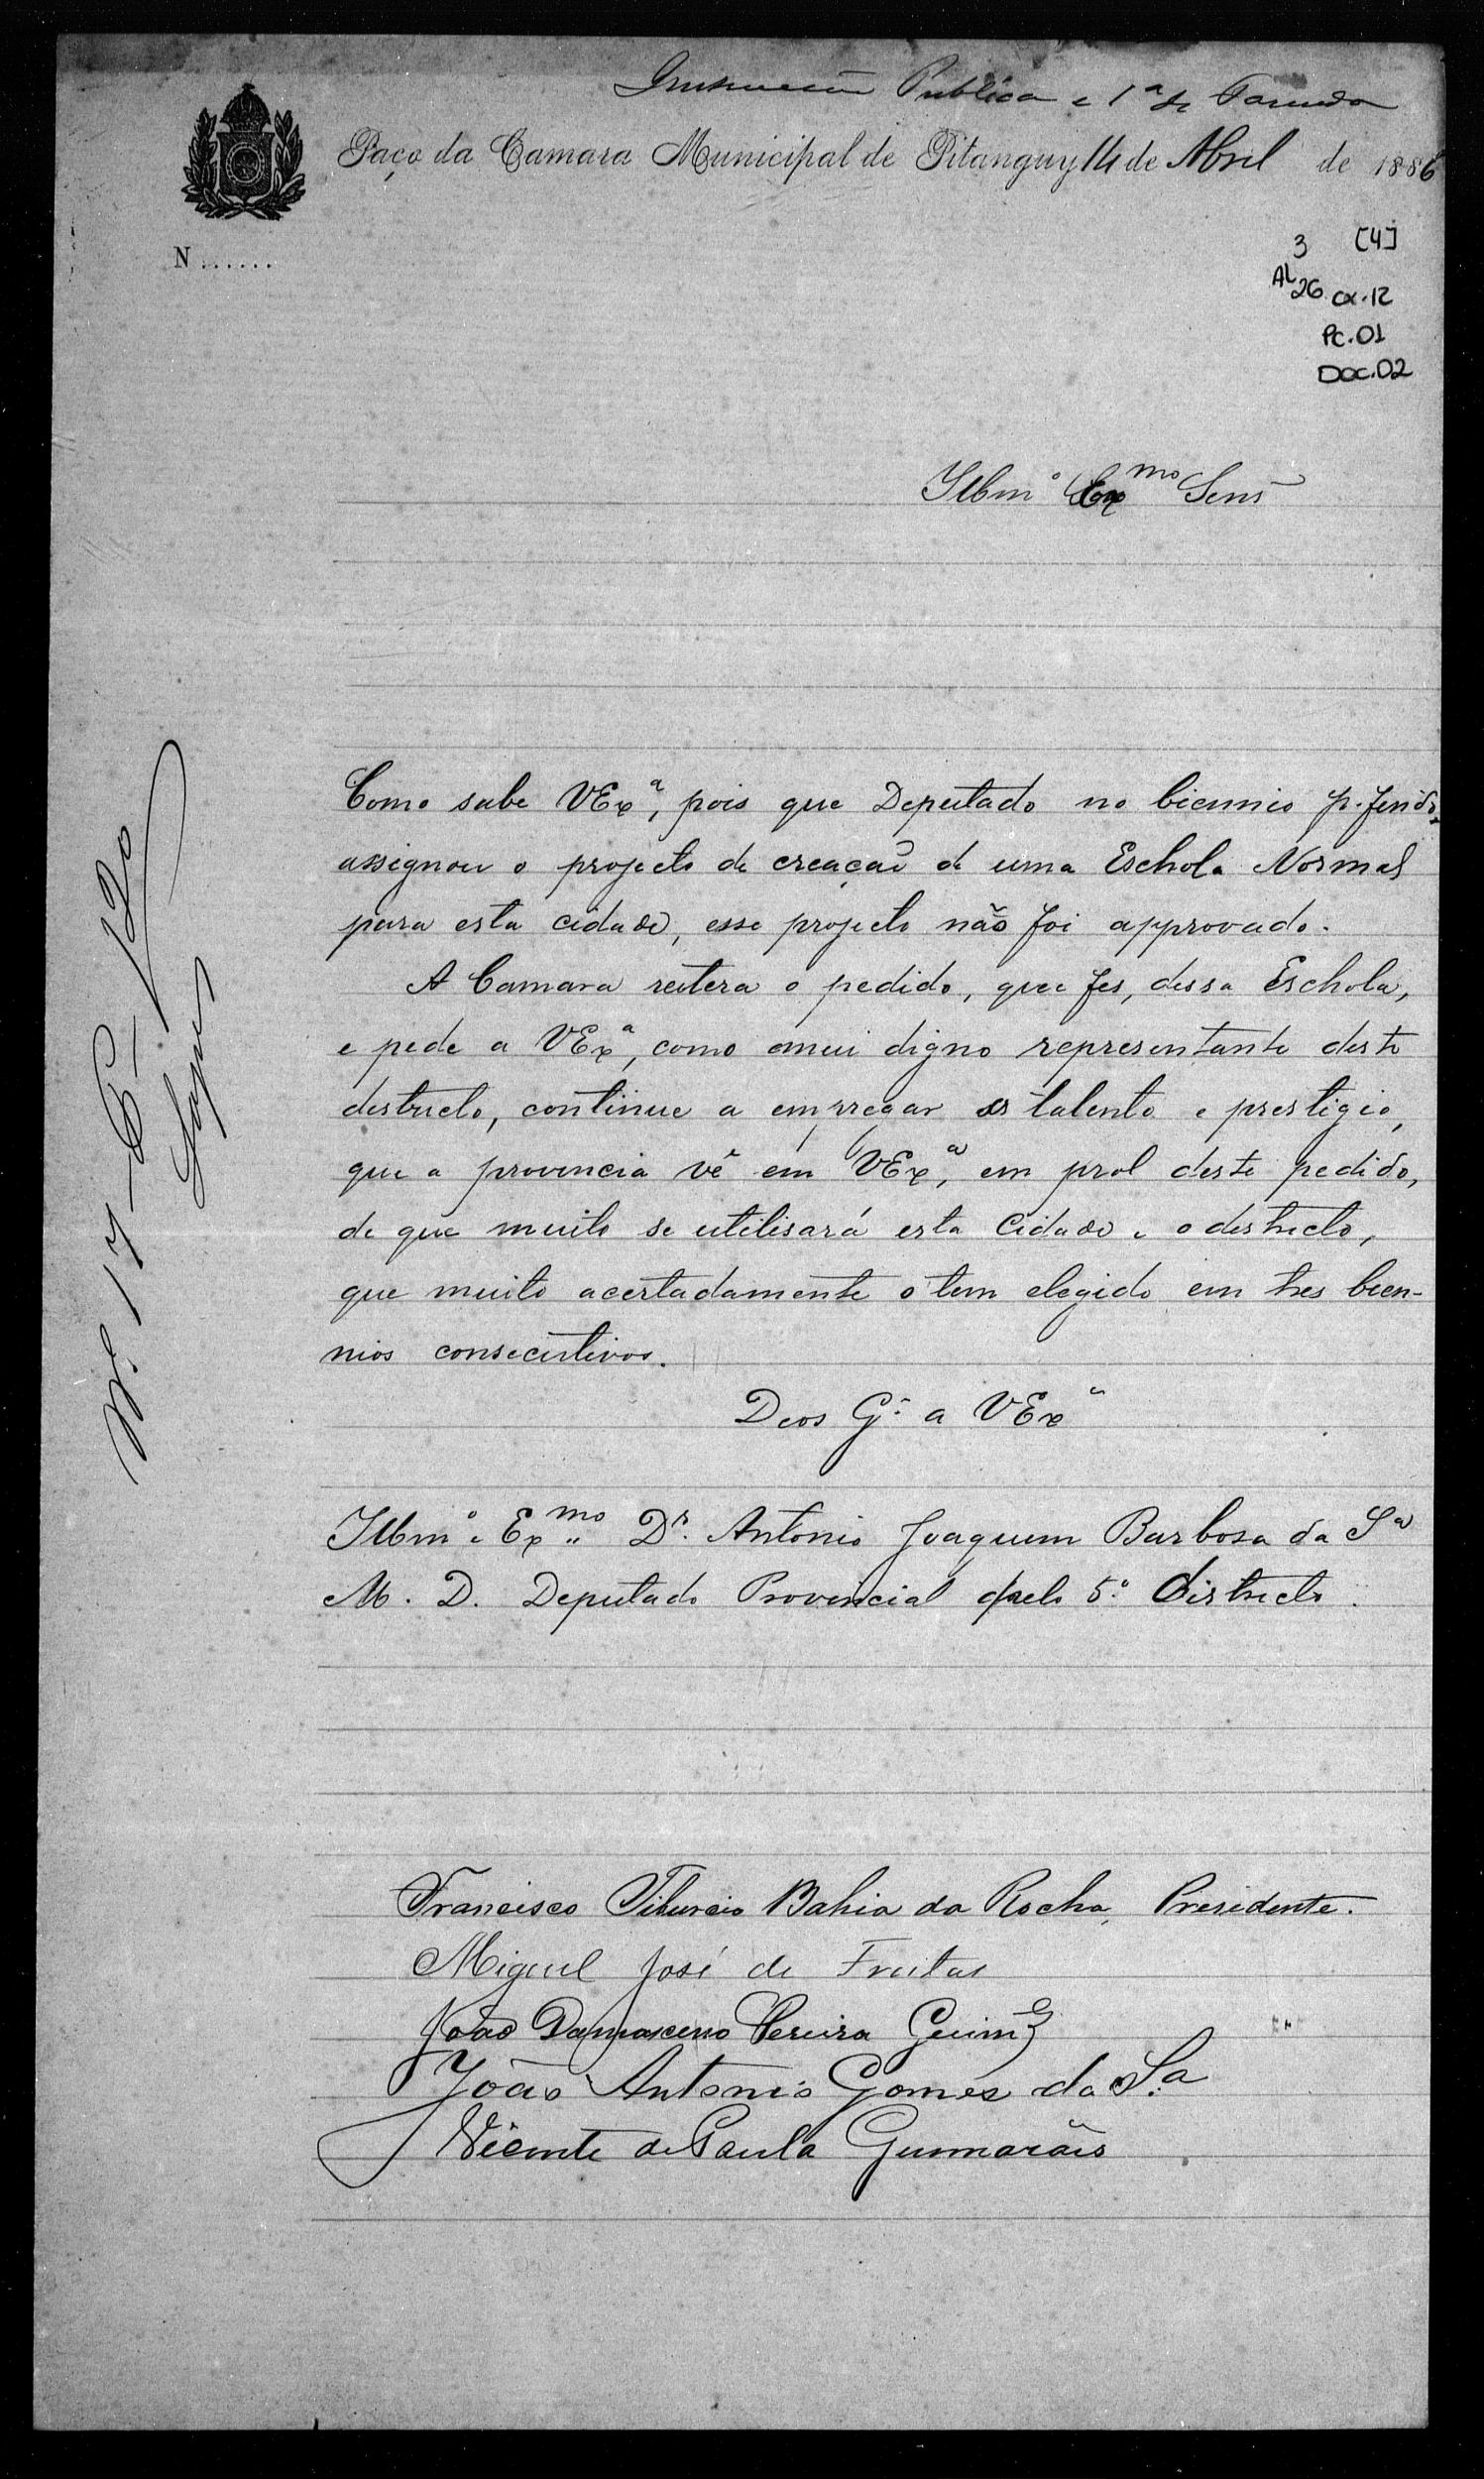 Instrucção Publica e 1ª de Fazenda
Paço da Camara Municipal de Pitanguy 14 de Abril de 1886
N......
3 [4]
AL 26 cx.12
Pc.01
Doc.02
Illmº Exmo Senr
Como sabe VExª, pois que Deputado no biennio p. findo,
assignou o projecto de creação de uma Eschola Normal
para esta cidade, esse projecto não foi approvado.
A Camara reitera o pedido, que fes, dessa Eschola,
e pede a VExª, como mui digno representante deste
destricto, continue a empregar os talento e prestigio,
que a provincia vê em VExª, em prol deste pedido,
de que muito se utilisará esta Cidade e o destricto,
que muito acertadamente o tem elegido em tres bien-
nios consecutivos.
Deos Gᵉ a VExª
Illmº e Exmo Dr. Antonio Joaquim Barbosa da Sª
M. D. Deputado Provincial pelo 5º Districto.
Francisco Tiburcio Bahia da Rocha, Presidente.
Miguel José de Freitas
João Damasceno Pereira Guimes
João Antonio Gomes da S.ª
Vicente de Paula Guimarães
Nº 17 - C - 120